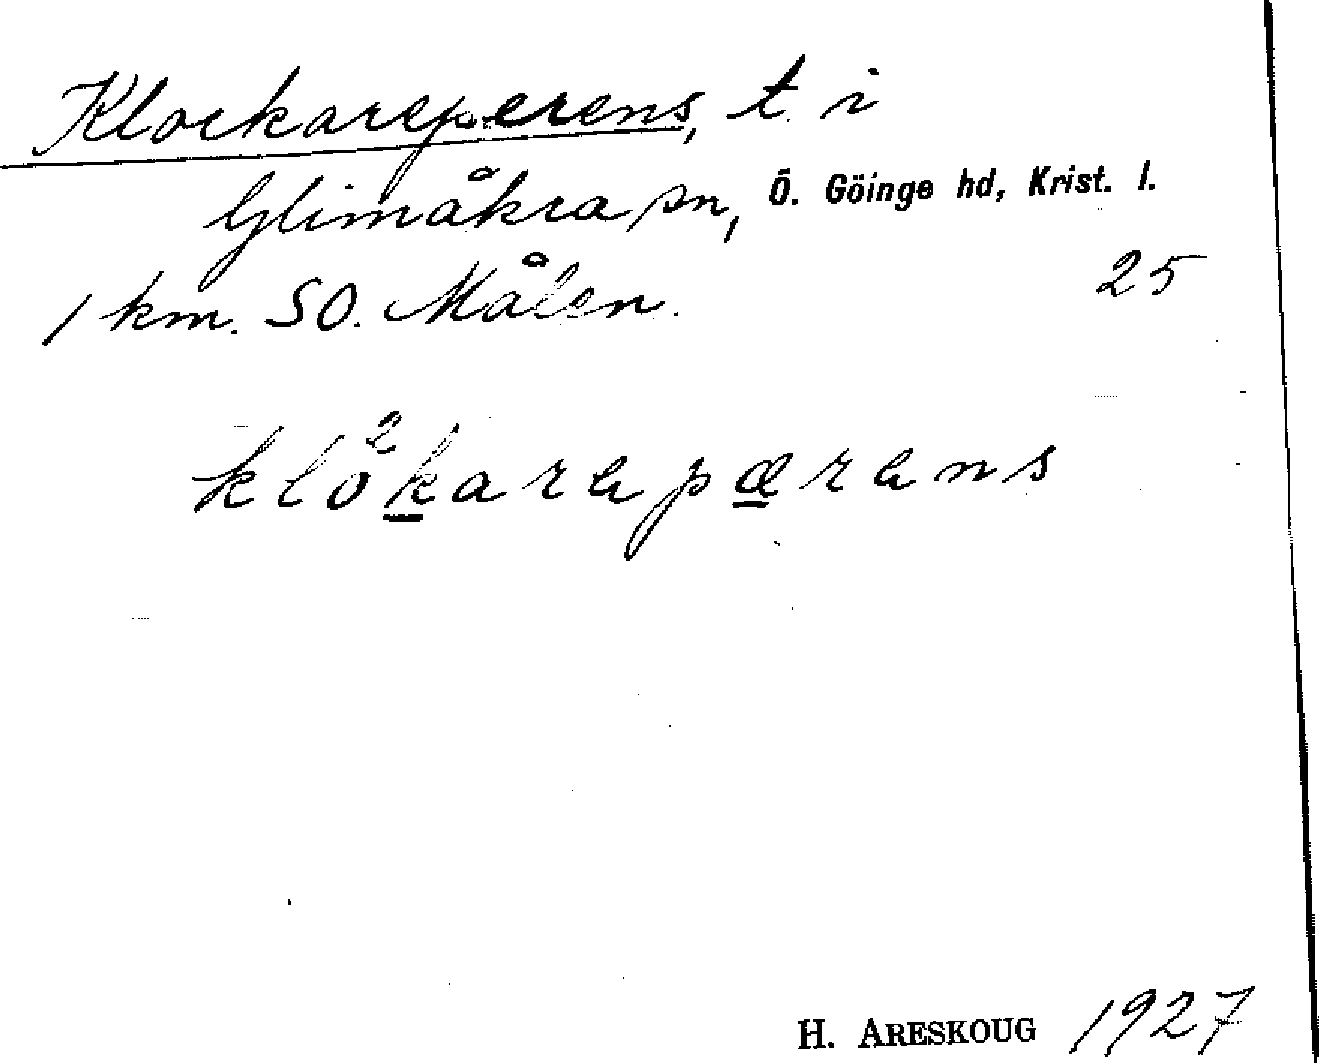 Klockareperens, t. i
Glimåkra sn, Ö. Göinge hd, Krist. l.
1 km. SO. Målen. 25
klo²karapærans
H. ARESKOUG 1927